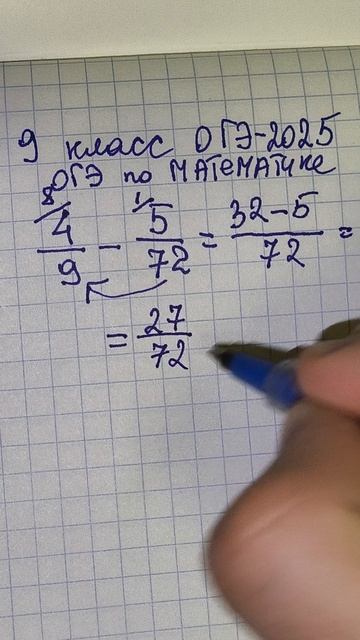 9 класс ОГЭ-2025
ОГЭ по математике
8/4/9 - 1/5/72 = 32-5/72 =
= 27/72